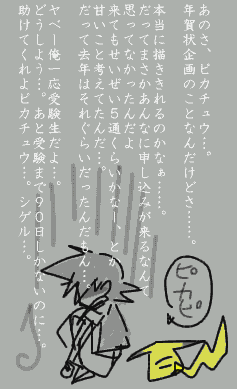 あのさ、ピカチュウ…。
年賀状企画のことなんだけどさ……。
本当に描ききれるのかなぁ……。
だってまさかあんなに申し込みが来るなんて
思ってなかったんだよ
来てもせいぜい５通くらいかなー、とか
甘いこと考えてたんだ…。
だって去年はそれぐらいだったんだもん…
ヤベー俺一応受験生だよ…。
どうしよう…。あと受験まで９０日しかないのに…。
助けてくれよピカチュウ…。シゲル…。
ピカピ